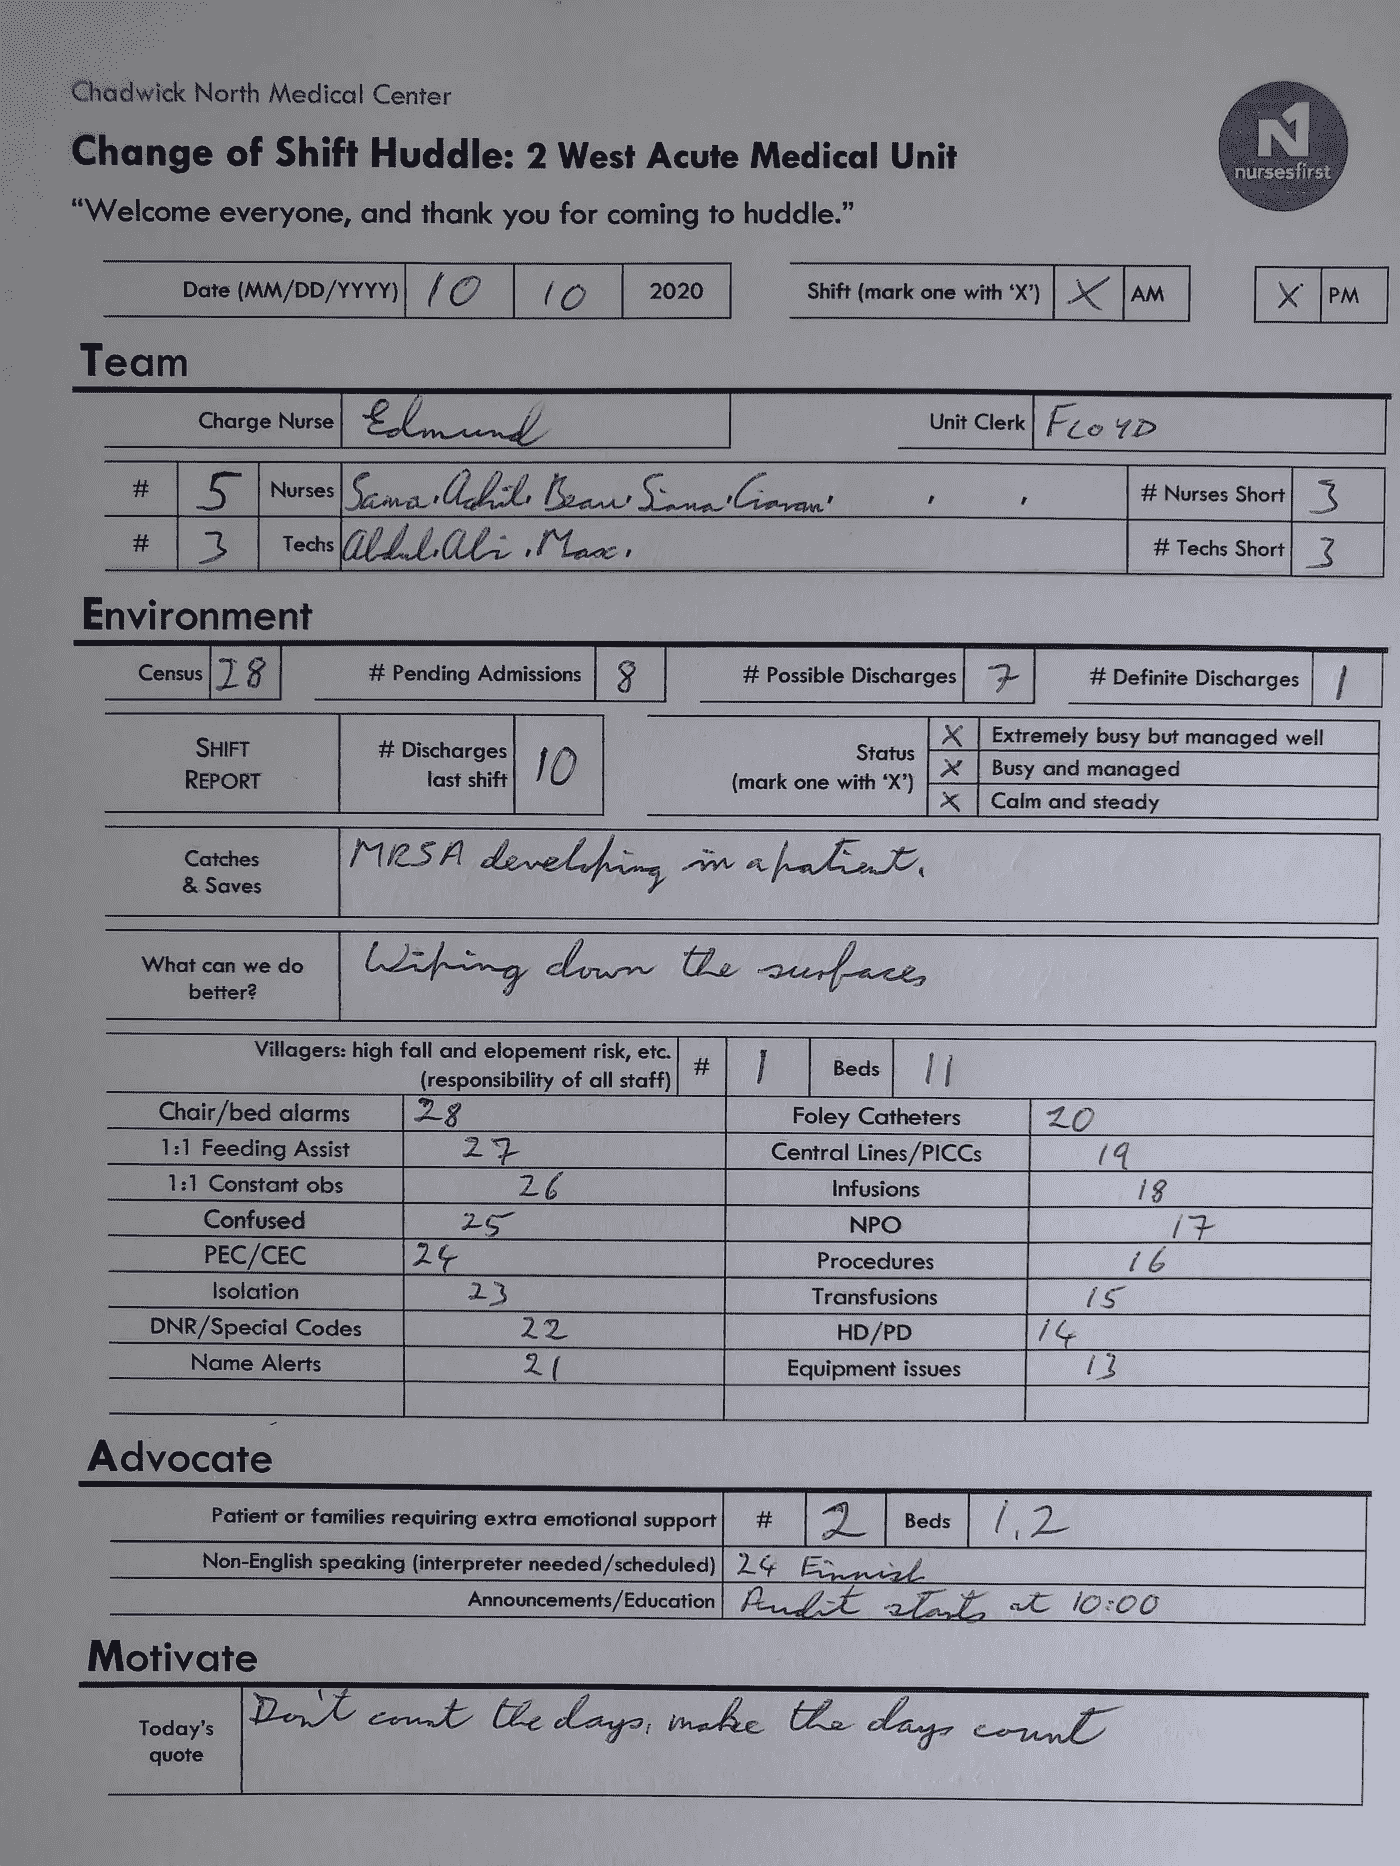 Chadwick North Medical Center
N1
nursesfirst
Change of Shift Huddle: 2 West Acute Medical Unit
“Welcome everyone, and thank you for coming to huddle.”
Date (MM/DD/YYYY) 10 10 2020 Shift (mark one with ‘X’) X AM X PM
Team
Charge Nurse Edmund Unit Clerk FLOYD
# 5 Nurses Sama, Beau, Siana, Ciaran, , , # Nurses Short 3
# 3 Techs Abdul, Ali, Max, # Techs Short 3
Environment
Census 28 # Pending Admissions 8 # Possible Discharges 7 # Definite Discharges 1
SHIFT REPORT # Discharges last shift 10 Status (mark one with ‘X’) X Extremely busy but managed well
X Busy and managed
X Calm and steady
Catches & Saves MRSA developing in a patient.
What can we do better? Wiping down the surfaces
Villagers: high fall and elopement risk, etc. (responsibility of all staff) # 1 Beds 11
Chair/bed alarms 28 Foley Catheters 20
1:1 Feeding Assist 27 Central Lines/PICCs 19
1:1 Constant obs 26 Infusions 18
Confused 25 NPO 17
PEC/CEC 24 Procedures 16
Isolation 23 Transfusions 15
DNR/Special Codes 22 HD/PD 14
Name Alerts 21 Equipment issues 13
Advocate
Patient or families requiring extra emotional support # 2 Beds 1,2
Non-English speaking (interpreter needed/scheduled) 24 Finnish
Announcements/Education Audit starts at 10:00
Motivate
Today’s quote Don't count the days, make the days count